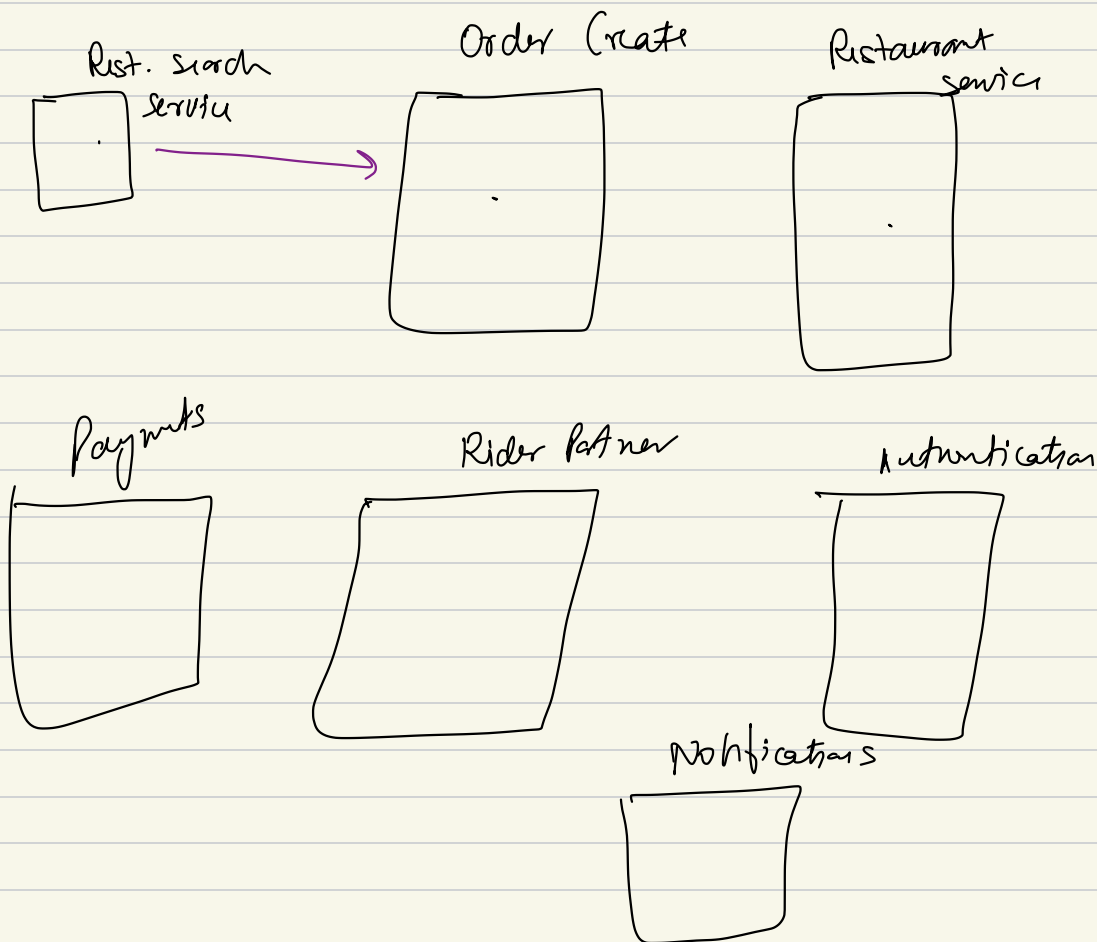 Rest. search
service
Order Create
Restaurant
service
Payments
Rider Partner
Authentication
Notifications